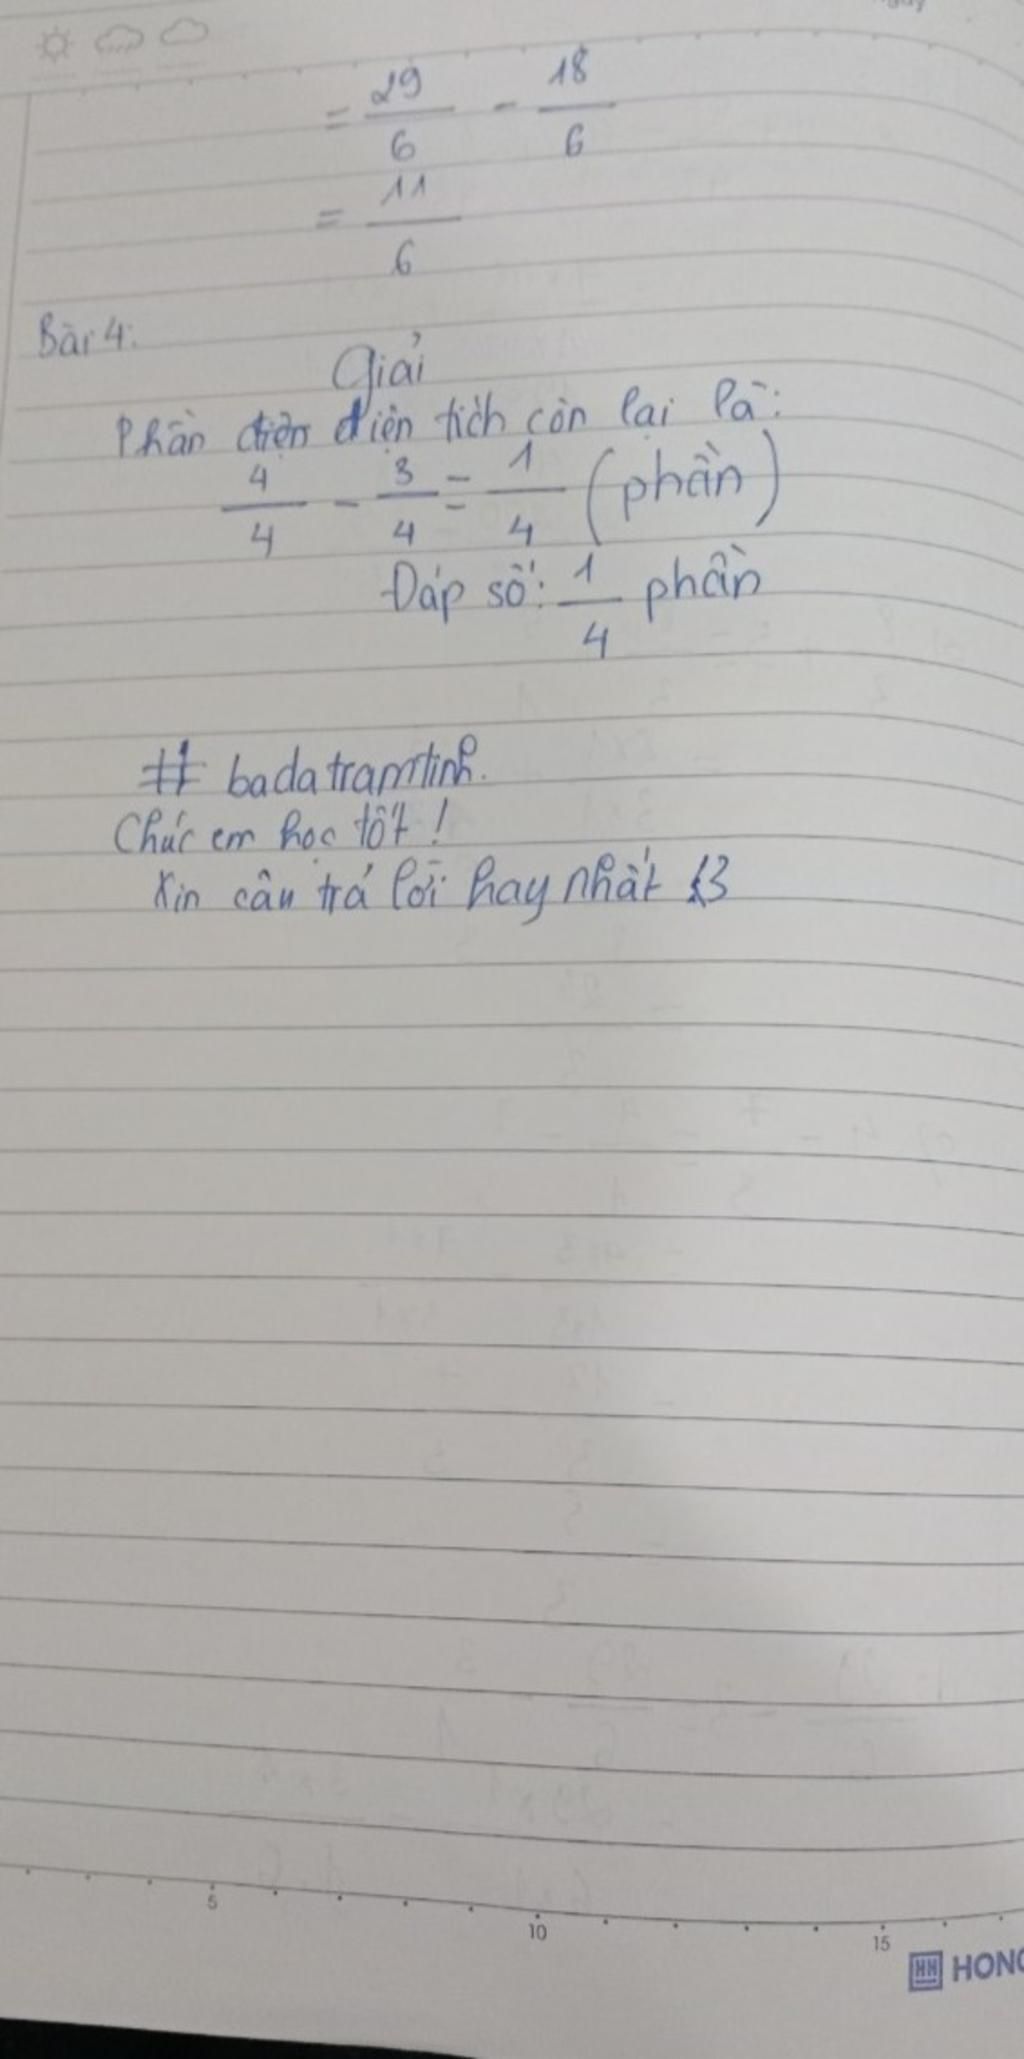 = 29/6 - 18/6
= 11/6
Bài 4:
Giải
Phần diện tích còn lại là:
4/4 - 3/4 = 1/4 (phần)
Đáp số: 1/4 phần
# badatramtinh.
Chúc em học tốt!
Xin câu trả lời hay nhất <3
5 10 15
HH HONG